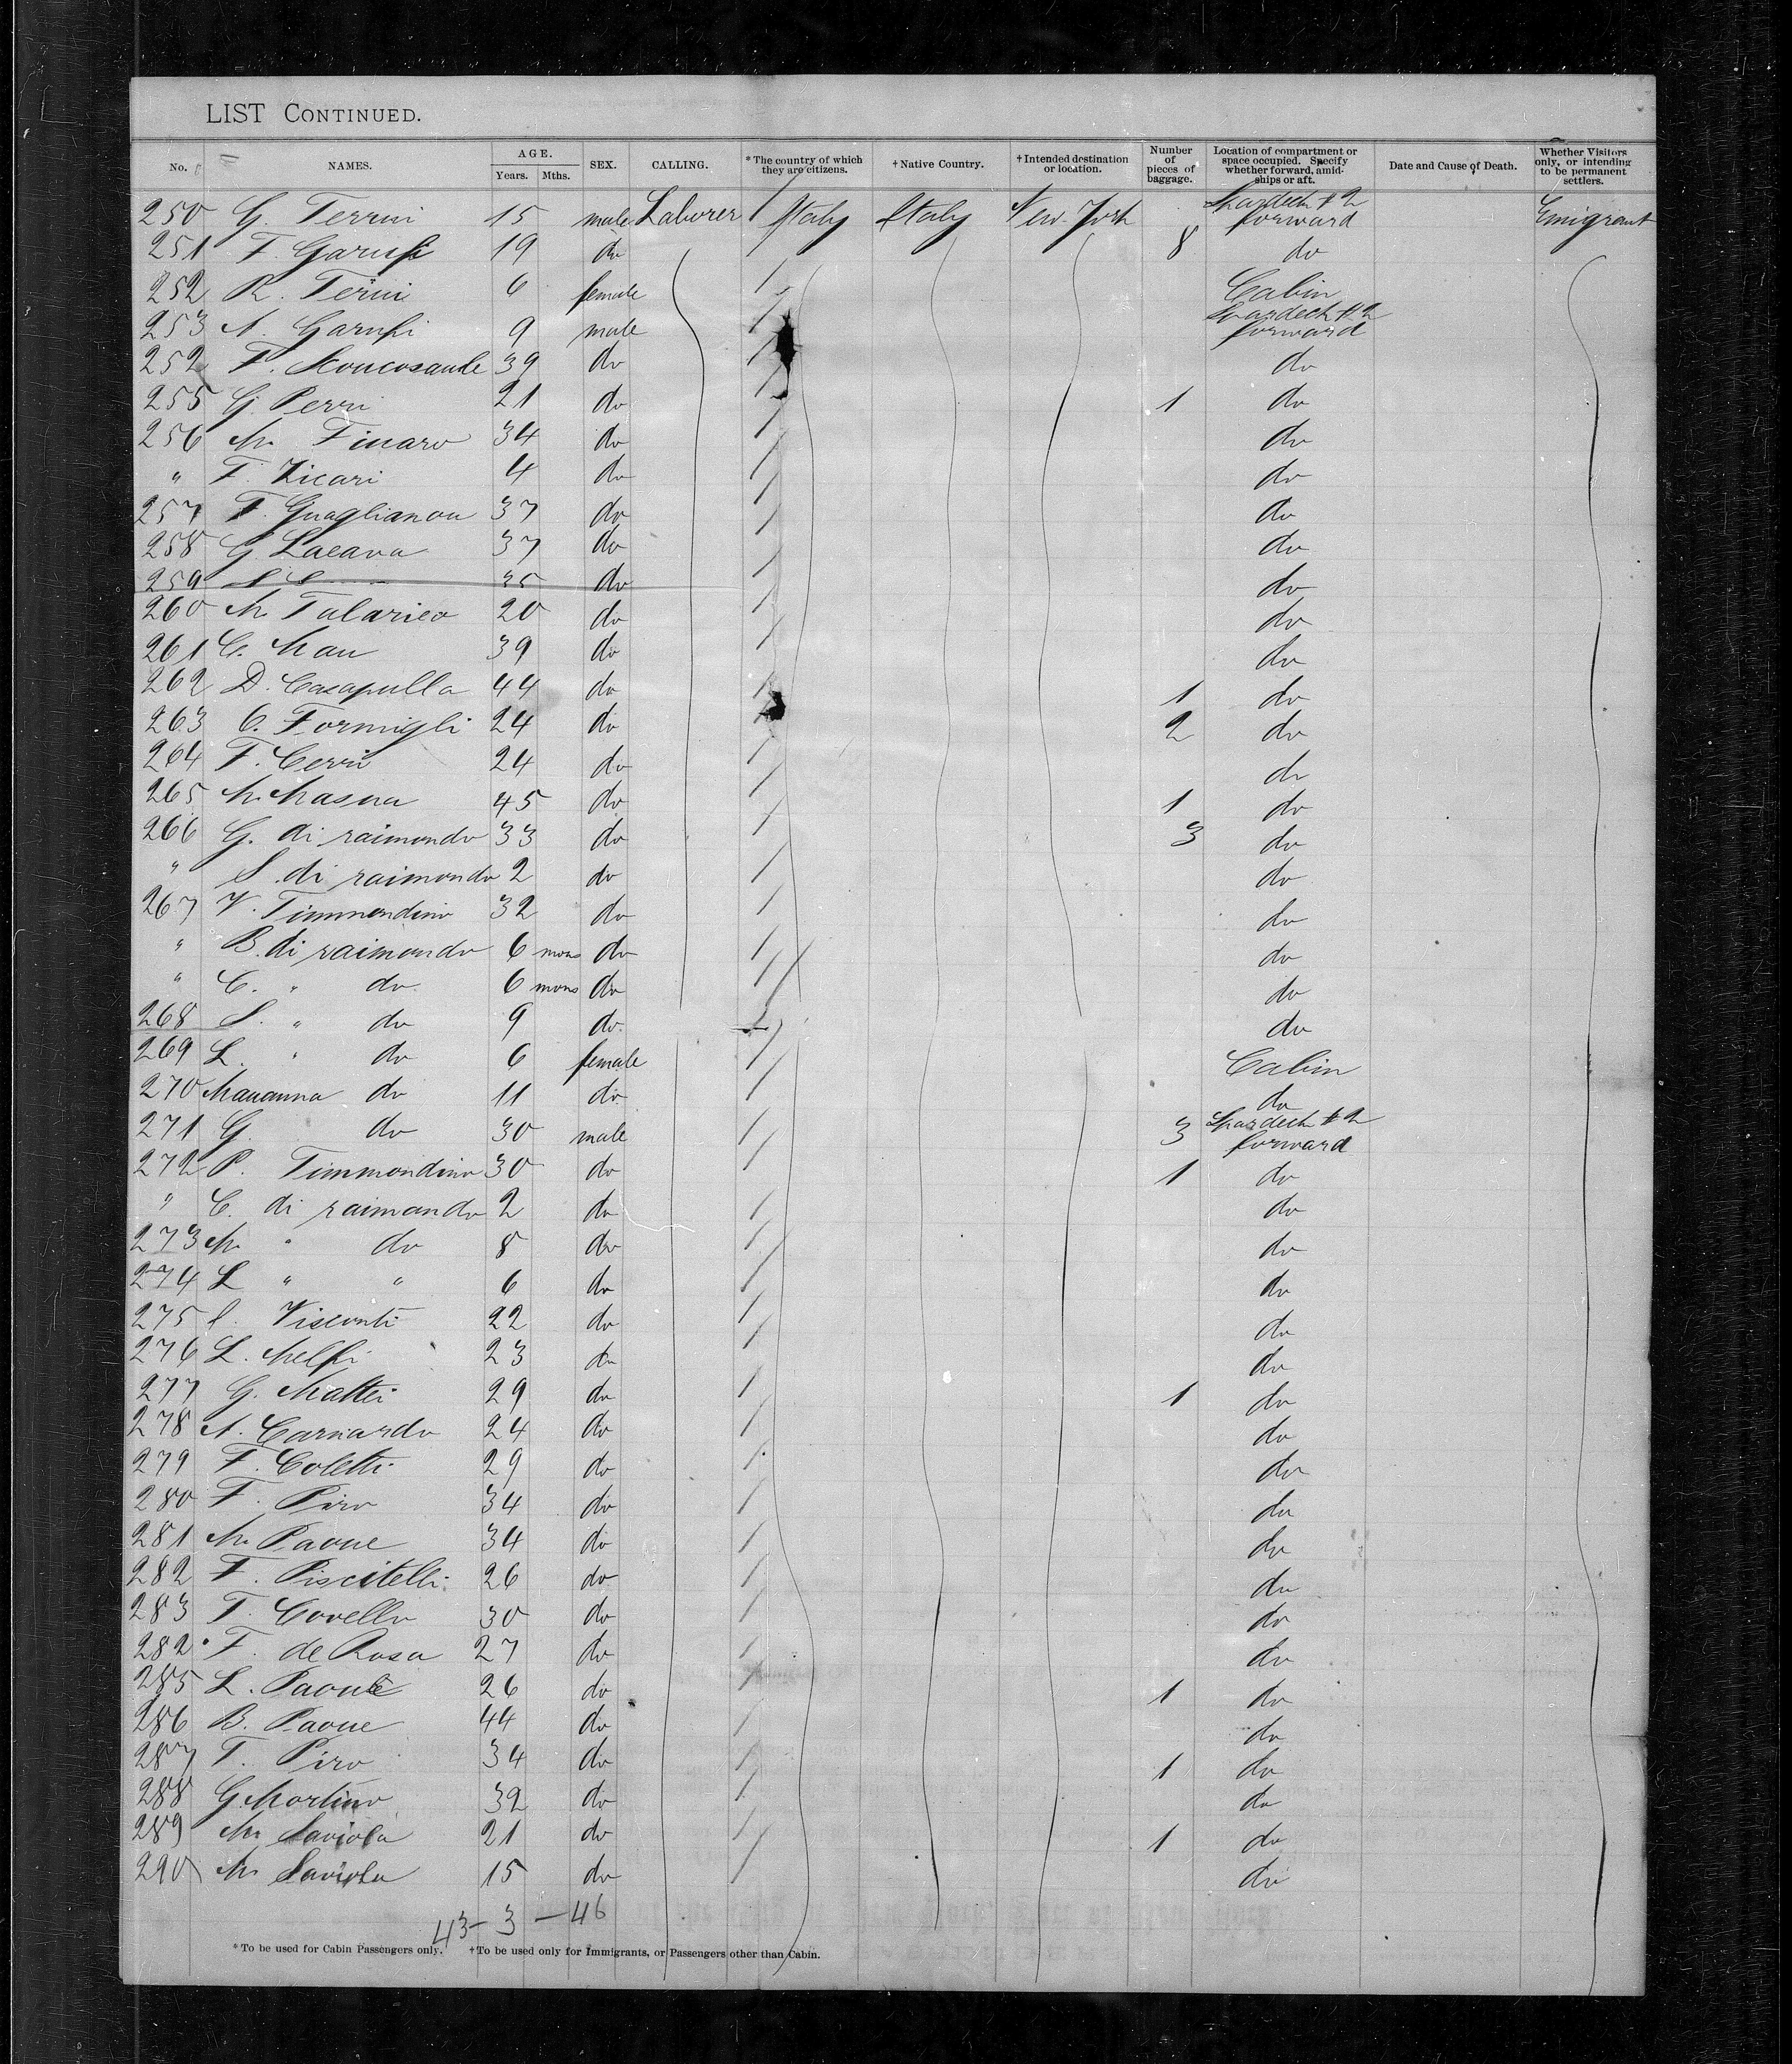 LIST CONTINUED.
No. NAMES. AGE. Years. Mths. SEX. CALLING. * The country of which they are citizens. † Native Country. † Intended destination or location. Number of pieces of baggage. Location of compartment or space occupied. Specify whether forward, amidships or aft. Date and Cause of Death. Whether Visitors only, or intending to be permanent settlers.
250 G. Terrini 15 male Laborer Italy Italy New York Spardeck #2 forward Emigrant
251 F. Garufi 19 do 8 do
252 R. Terini 6 female Cabin
253 A. Garufi 9 male Spardeck #2 forward
252 F. 39 do do
255 G. Perri 21 do 1 do
256 M Finaro 34 do do
" F. Zicari 4 do do
257 F. Guaglianou 37 do do
258 G. Lacava 37 do do
259 35 do do
260 M Talarico 20 do do
261 C. Mau 39 do do
262 D. Casapulla 44 do 1 do
263 C. Formigli 24 do 2 do
264 F. Cerri 24 do do
265 M. Masua 45 do 1 do
266 G. di raimondo 33 do 3 do
" S. di raimondo 2 do do
267 V. Timmondino 32 do do
" B. di raimondo 6 mons do do
" C. " do 6 mons do do
268 S. " do 9 do do
269 L. " do 6 female Cabin
270 do 11 do do
271 G. do 30 male 3 Spardeck #2 forward
272 P. Timmondino 30 do 1 do
" C. di raimando 2 do do
273 M. " do 8 do do
274 L " " 6 do do
275 Visconti 22 do do
276 L. Melfi 23 do do
277 G. Mattei 29 do 1 do
278 A. Carnardo 24 do do
279 F. Coletti 29 do do
280 F. Piro 34 do do
281 M. Paone 34 do do
282 F. Piscitelli 26 do do
283 T. Covello 30 do do
282 F. de Rosa 27 do do
285 L. Paone 26 do 1 do
286 B. Paone 44 do do
287 T. Piro 34 do 1 do
288 G. Martino 32 do do
289 M Saviola 21 do 1 do
290 M Saviola 15 do do
43 - 3 - 46
* To be used for Cabin Passengers only. † To be used only for Immigrants, or Passengers other than Cabin.